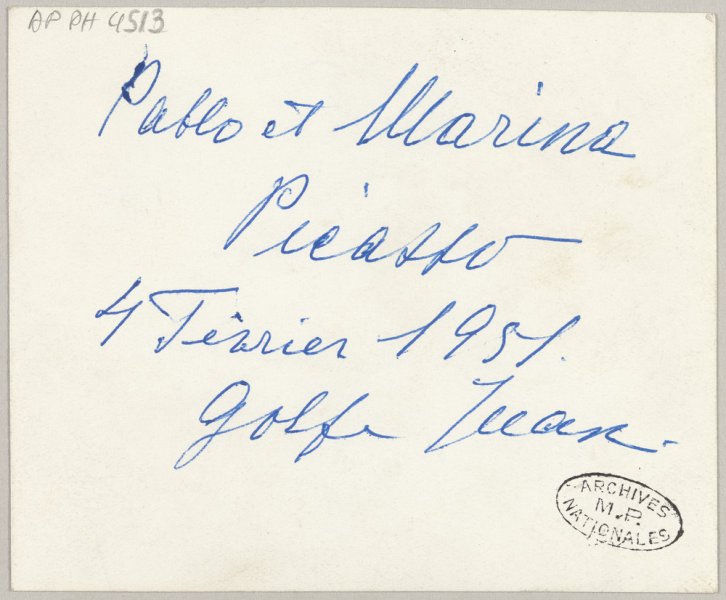 AP PH 4513
Pablo et Marina
Picasso
4 Février 1951.
Golfe Juan.
ARCHIVES
M.P.
NATIONALES